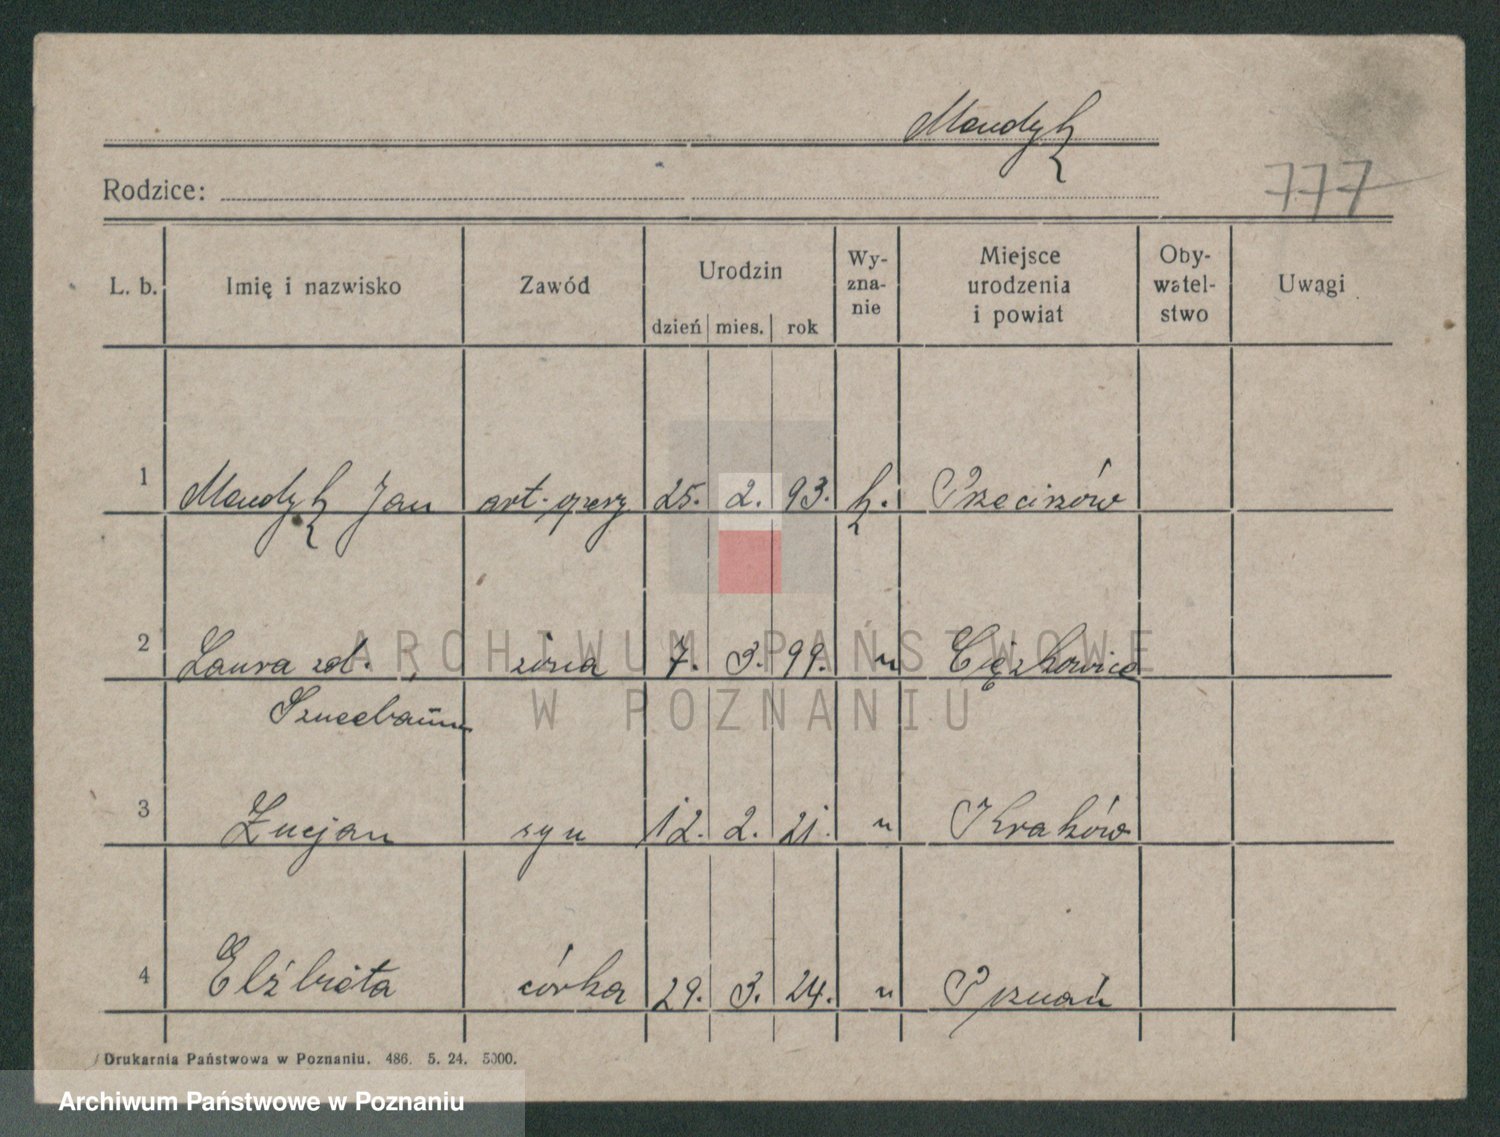 Mandyk
777
Rodzice:
L. b. Imię i nazwisko Zawód Urodzin dzień mies. rok Wy-zna-nie Miejsce urodzenia i powiat Oby-watel-stwo Uwagi
1 Mandyk Jan art. opery 25. 2. 93. k. Przeciszów
2 Laura zd. żona 7. 3. 99. " Ciężkowice
3 Lucjan syn 12. 2. 21. " Kraków
4 Elżbieta córka 29. 3. 24. " Poznań
Drukarnia Państwowa w Poznaniu. 486. 5. 24. 5000.
ARCHIWUM PAŃSTWOWE
W POZNANIU
Archiwum Państwowe w Poznaniu